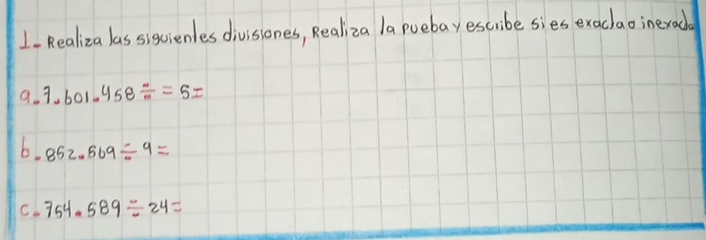 1- Realiza las siguientes divisiones, Realiza la pueba y escribe si es exacta o inexacta
a. 7.601.458 ÷ = 5=
b. 852.569 ÷ 9 =
c. 754.589 ÷ 24 =